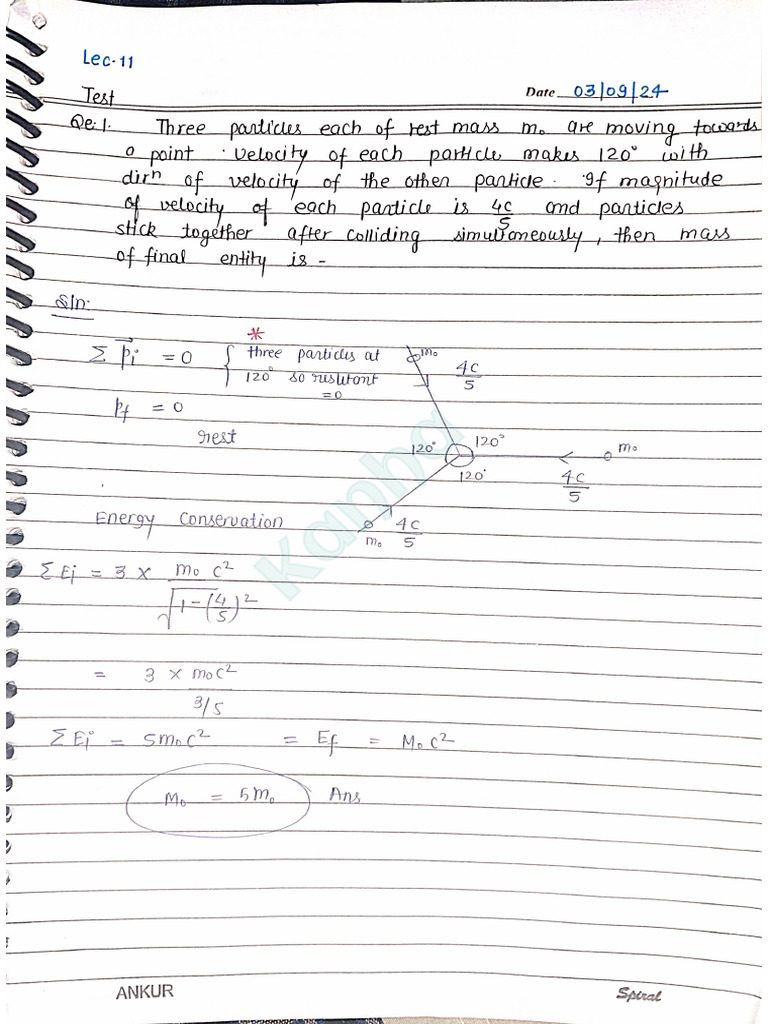 Lec-11
Test
Date 03/09/24
Qe.1. Three particles each of rest mass m₀ are moving towards
a point. Velocity of each particle makes 120° with
dirⁿ of velocity of the other particle. If magnitude
of velocity of each particle is 4c/5 and particles
stick together after colliding simultaneously, then mass
of final entity is -
Sln:
*
Σ p⃗i = 0 { three particles at
120° so resultant
= 0
m₀
4c/5
Pf = 0
rest
120° 120°
120°
m₀
4c/5
Kanha
Energy Conservation
4c/5
m₀
ΣEi = 3 × m₀c² / √1-(4/5)²
= 3 × m₀c² / 3/5
ΣEi = 5m₀c² = Ef = M₀c²
M₀ = 5m₀ Ans
ANKUR
Spiral